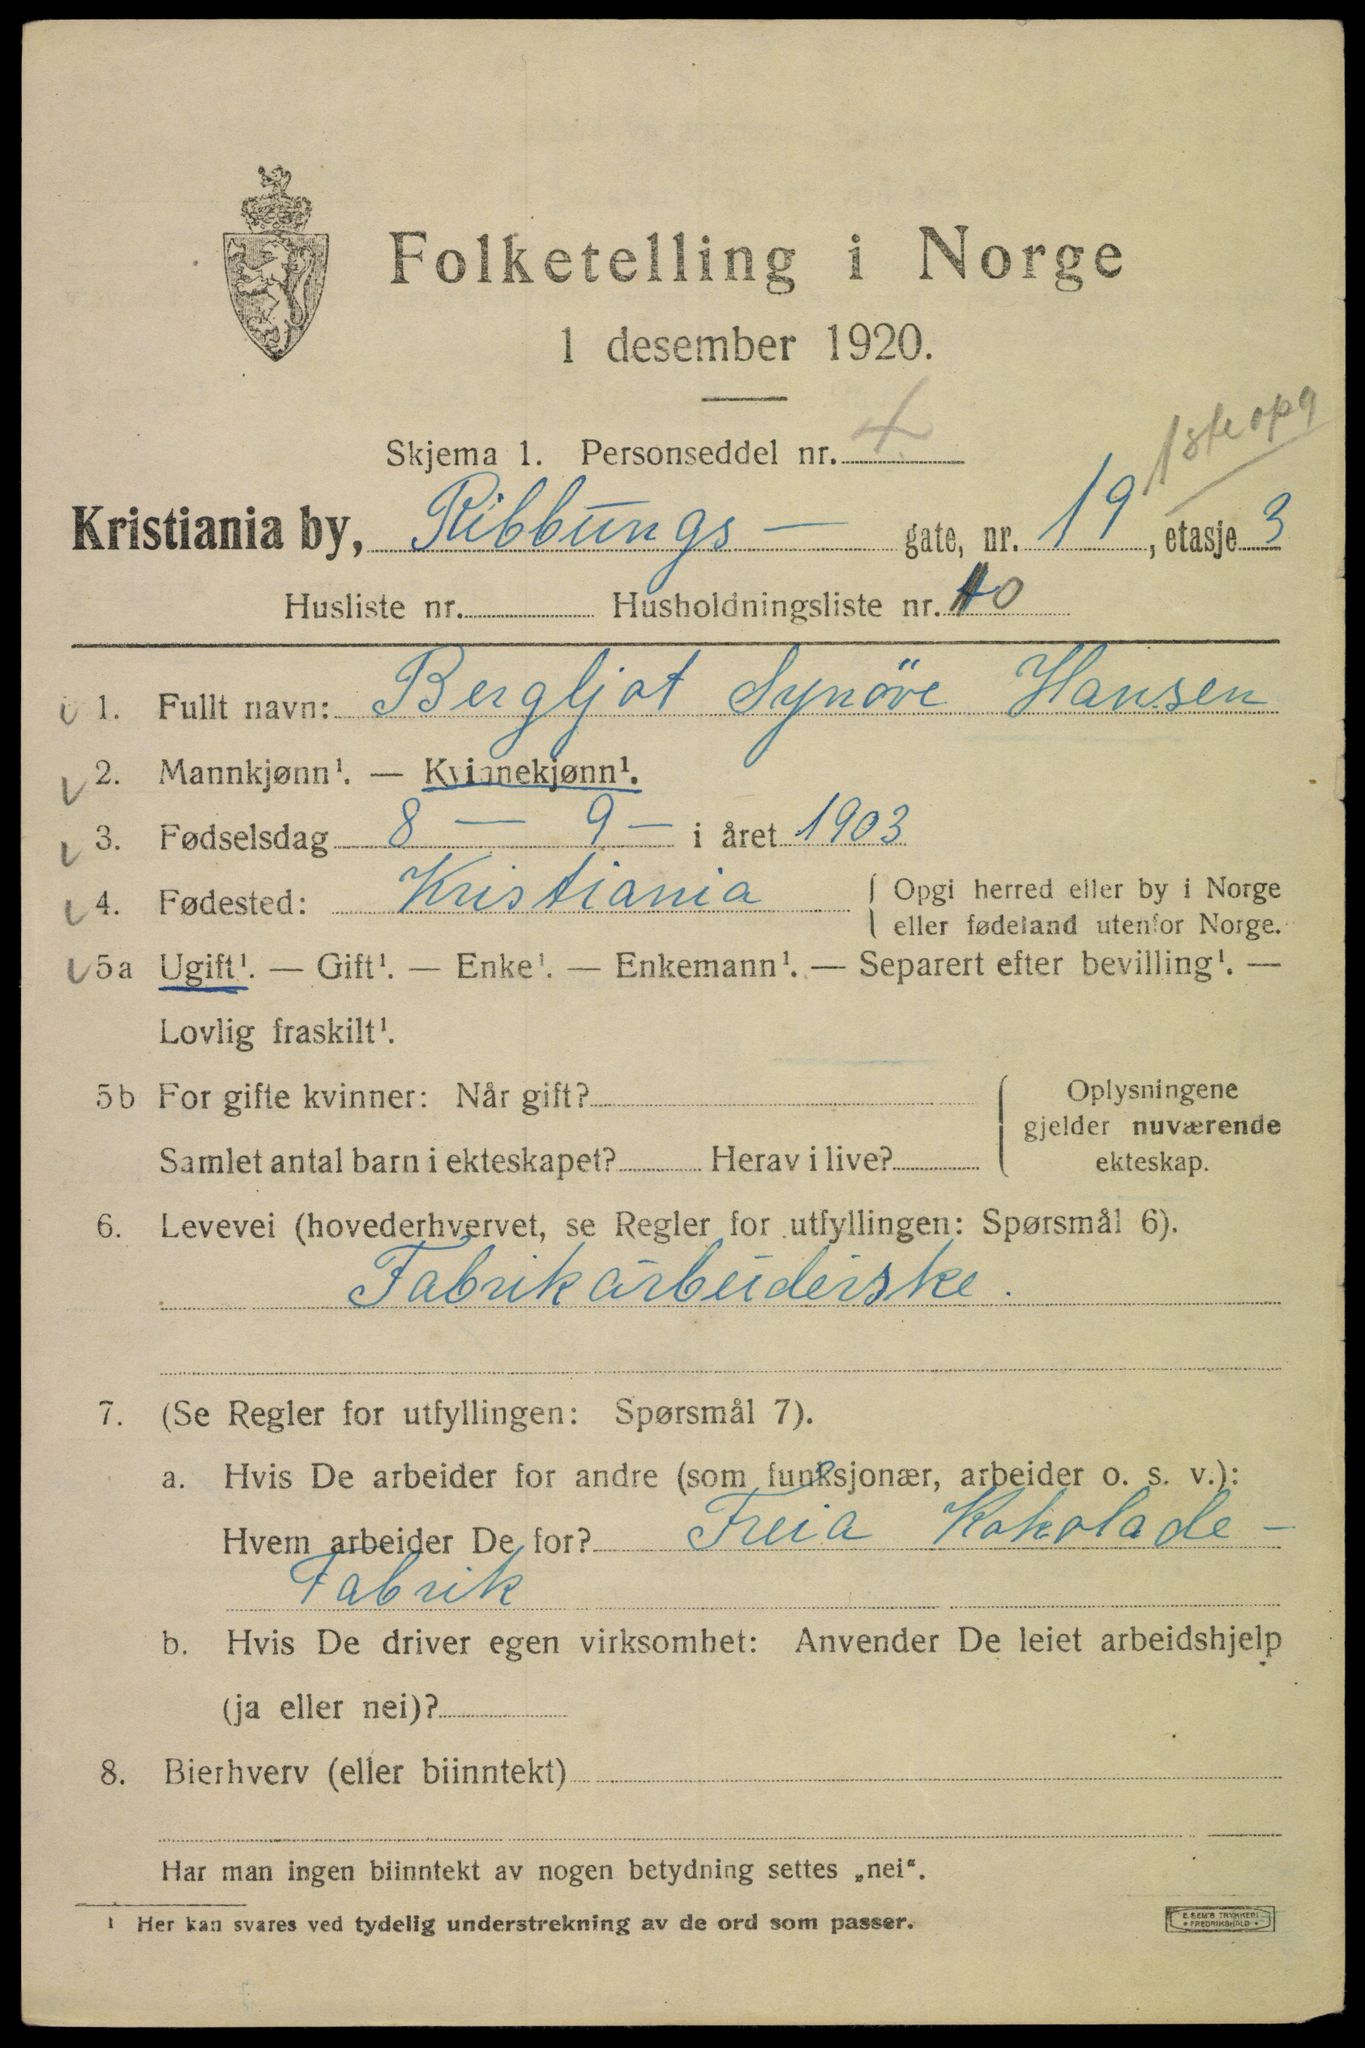 Folketelling i Norge
1 desember 1920.
Skjema 1. Personseddel nr. 4
1ste opg
Kristiania by, Ribbungs — gate, nr. 19, etasje 3
Husliste nr. Husholdningsliste nr. 10
1. Fullt navn: Bergljot Synöve Hansen
2. Mannkjønn¹. — Kvinnekjønn¹.
3. Fødselsdag 8 — 9 — i året 1903
4. Fødested: Kristiania { Opgi herred eller by i Norge
eller fødeland utenfor Norge.
5a Ugift¹. — Gift¹. — Enke¹. — Enkemann¹. — Separert efter bevilling¹. —
Lovlig fraskilt¹.
5b For gifte kvinner: Når gift?
Samlet antal barn i ekteskapet? Herav i live?
{ Oplysningene
gjelder nuværende
ekteskap.
6. Levevei (hovederhvervet, se Regler for utfyllingen: Spørsmål 6).
Fabrikarbeiderske.
7. (Se Regler for utfyllingen: Spørsmål 7).
a. Hvis De arbeider for andre (som funksjonær, arbeider o. s. v.):
Hvem arbeider De for? Freia Kokolade-
Fabrik
b. Hvis De driver egen virksomhet: Anvender De leiet arbeidshjelp
(ja eller nei)?
8. Bierhverv (eller biinntekt)
Har man ingen biinntekt av nogen betydning settes „nei“.
¹ Her kan svares ved tydelig understrekning av de ord som passer.
E. SEM'S TRYKKERI
• FREDRIKSHALD •